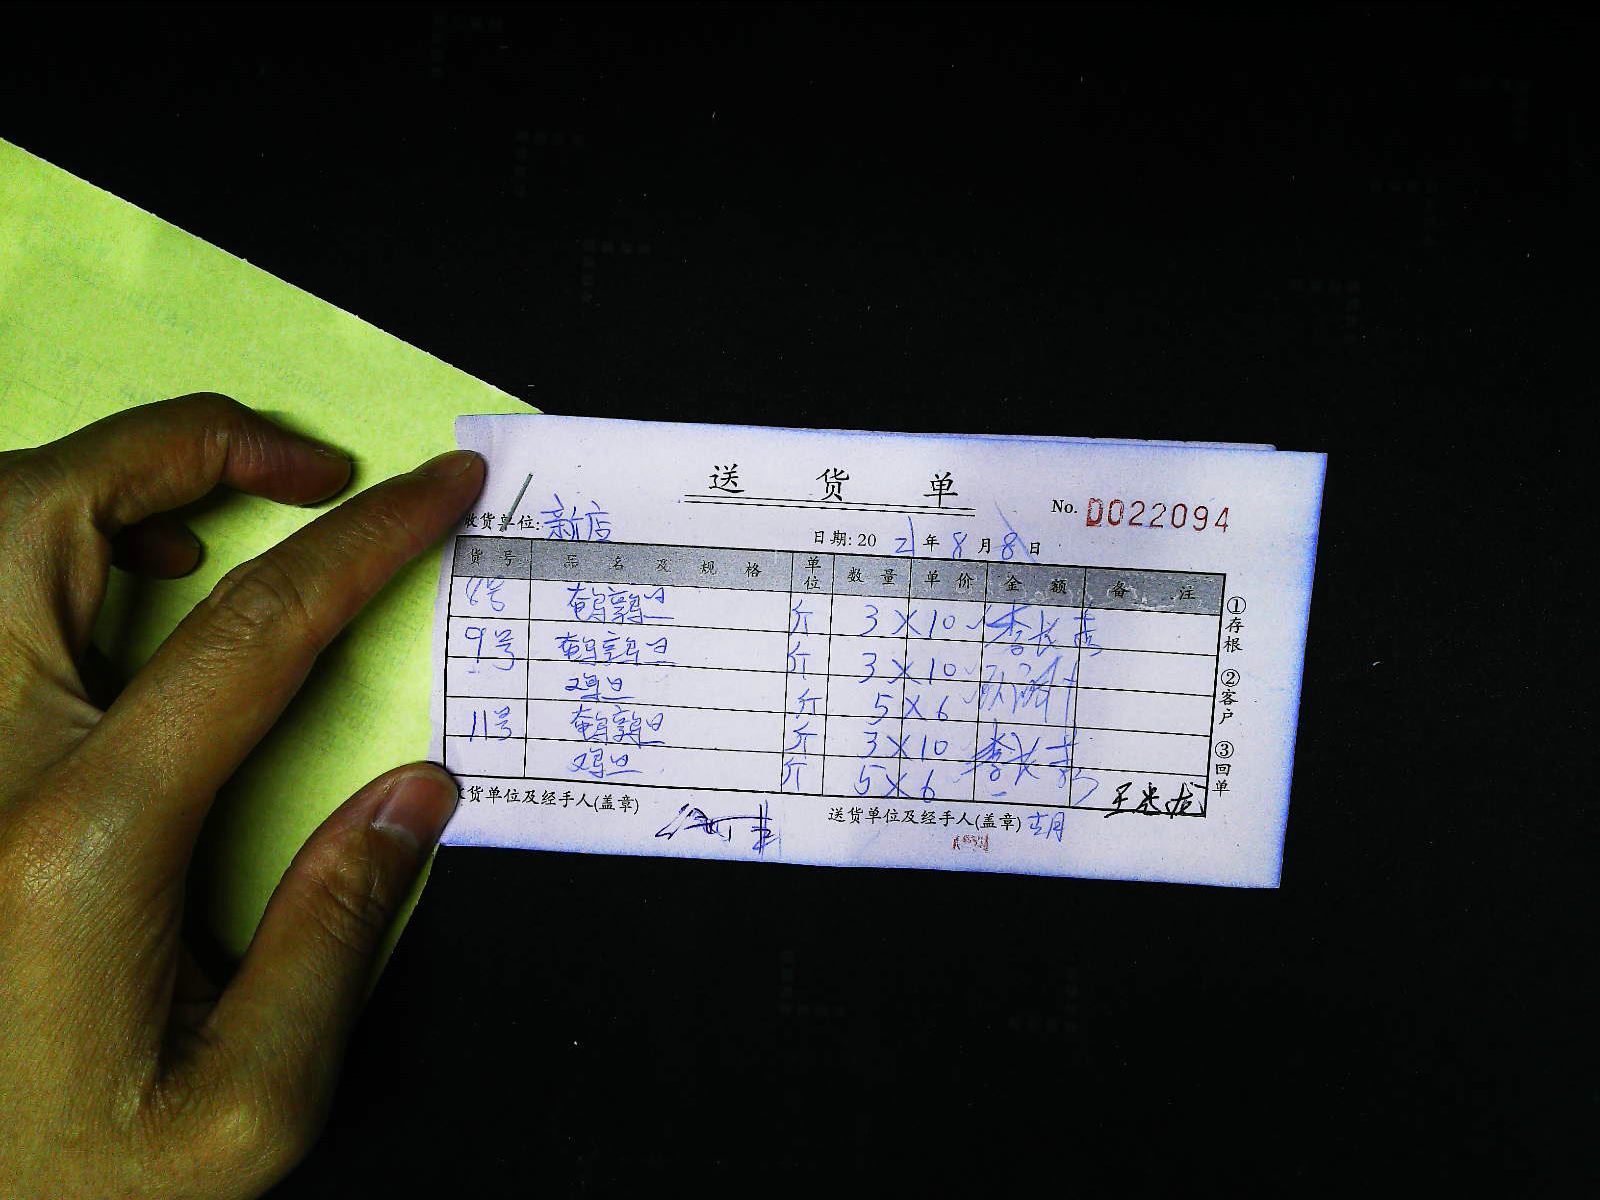 送 货 单
No. D022094
收货单位: 新店
日期: 20 21 年 8 月 8 日
货 号 品 名 及 规 格 单位 数 量 单 价 金 额 备 注
号 鹌鹑旦 斤 3×10 李长吉
9号 鹌鹑旦 斤 3×10
鸡旦 斤 5×6
11号 鹌鹑旦 斤 3×10 李长吉
鸡旦 斤 5×6
收货单位及经手人(盖章)
送货单位及经手人(盖章) 胡
①存根 ②客户 ③回单